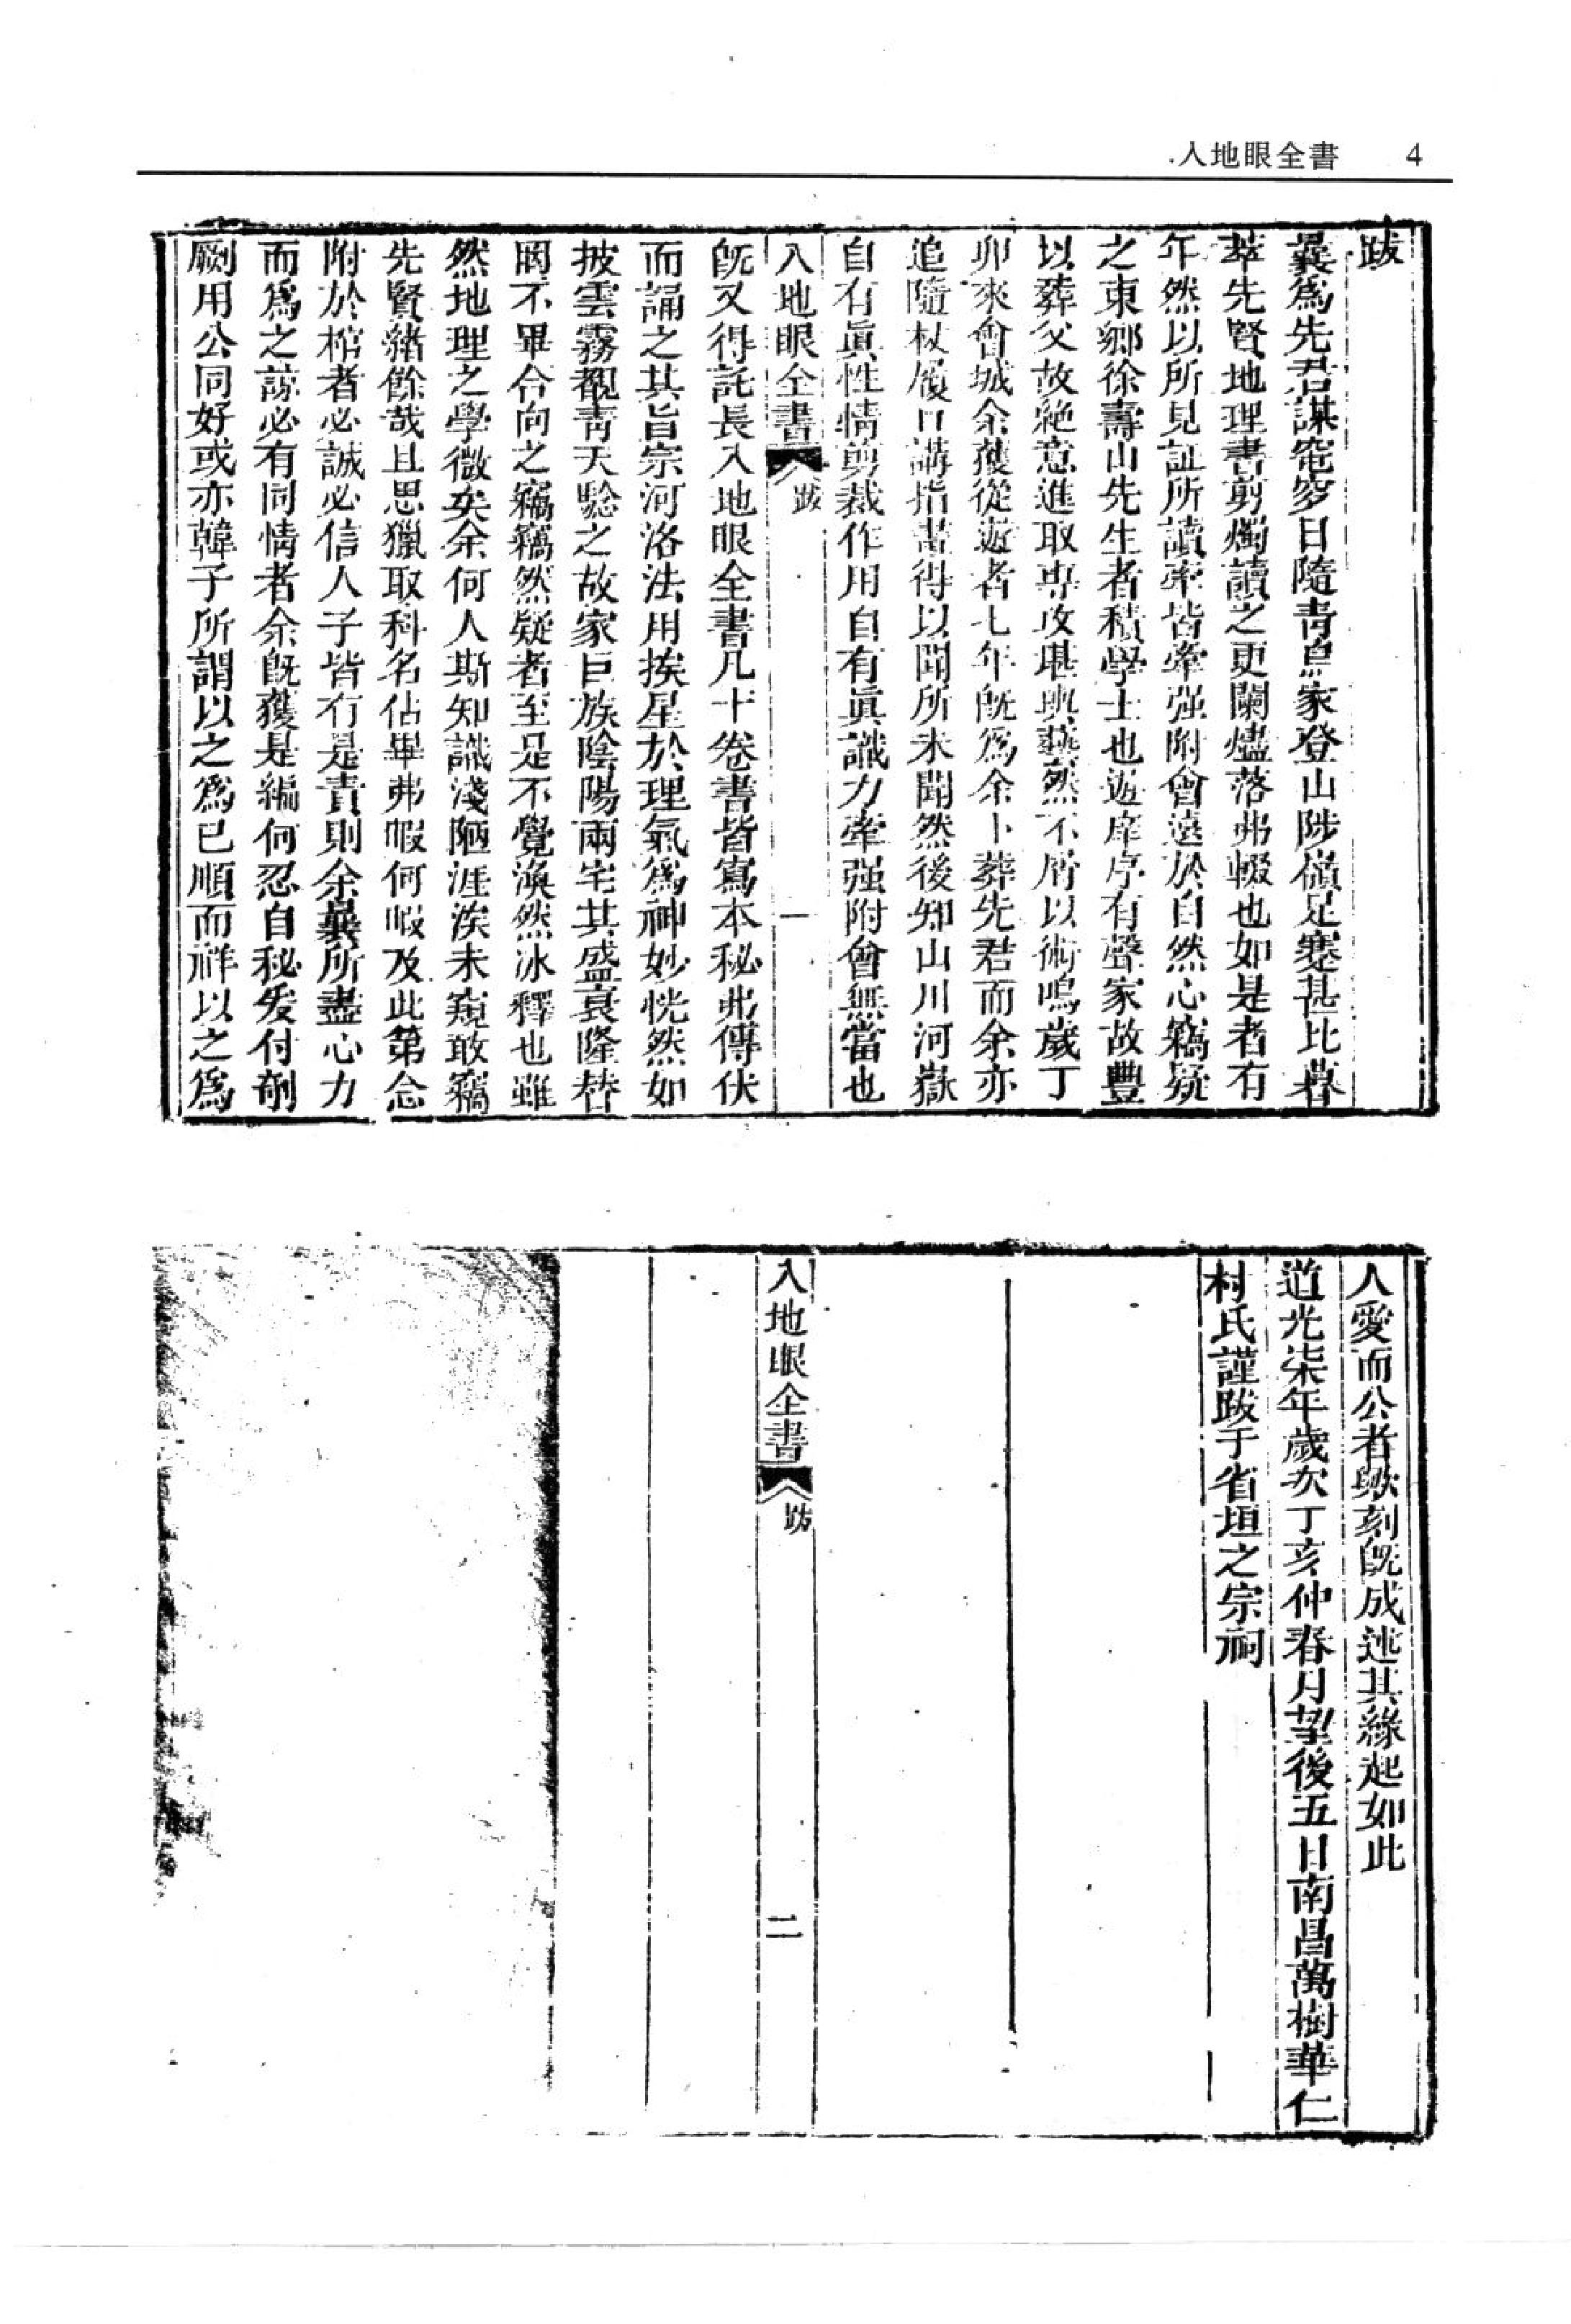 入地眼全書 4
跋
曩爲先君謀窀穸日隨靑烏家登山陟嶺足蹇甚比暮
萃先賢地理書剪燭讀之更闌燼落弗輟也如是者有
年然以所見証所讀率皆牽强附會遠於自然心竊疑
之東鄉徐壽山先生者積學士也遊庠序有聲家故豐
以葬父故絶意進取專攻堪輿藝然不屑以術鳴歲丁
卯來會城余獲從遊者七年旣爲余卜葬先君而余亦
追隨杖履口講指畫得以聞所未聞然後知山川河嶽
自有眞性情剪裁作用自有眞識力牽强附會無當也
入地眼全書 跋 一
旣又得託長入地眼全書凡十卷書皆寫本秘弗傳伏
而誦之其旨宗河洛法用挨星於理氣爲神妙恍然如
披雲霧覩靑天驗之故家巨族陰陽兩宅其盛衰隆替
罔不畢合向之竊竊然疑者至是不覺渙然冰釋也雖
然地理之學微矣余何人斯知識淺陋涯涘未窺敢竊
先賢緖餘哉且思獵取科名佔畢弗暇何暇及此第念
附於棺者必誠必信人子皆有是責則余曩所盡心力
而爲之諒必有同情者余旣獲是編何忍自秘爰付剞
劂用公同好或亦韓子所謂以之爲已順而祥以之爲
人愛而公者歟刻旣成述其緣起如此
道光柒年歲次丁亥仲春月望後五日南昌萬樹華仁
村氏謹跋于省垣之宗祠
入地眼全書 跋 二